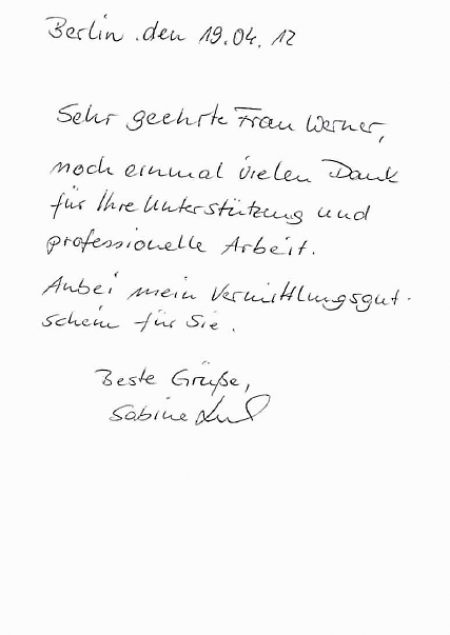 Berlin, den 19.04.12
Sehr geehrte Frau Werner,
noch einmal vielen Dank
für Ihre Unterstützung und
professionelle Arbeit.
Anbei mein Vermittlungsgut-
schein für Sie.
Beste Grüße,
Sabine